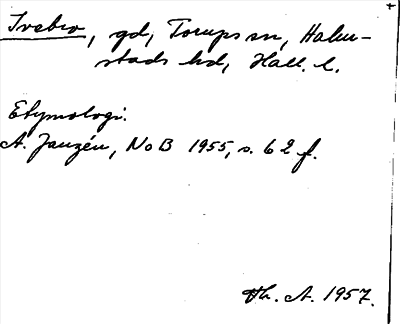 Ivebro, gd, Torups sn, Halm-
stads hd, Hall. l.
Etymologi.
A. Janzén, NoB 1955, s. 62 f.
Vh. A. 1957.